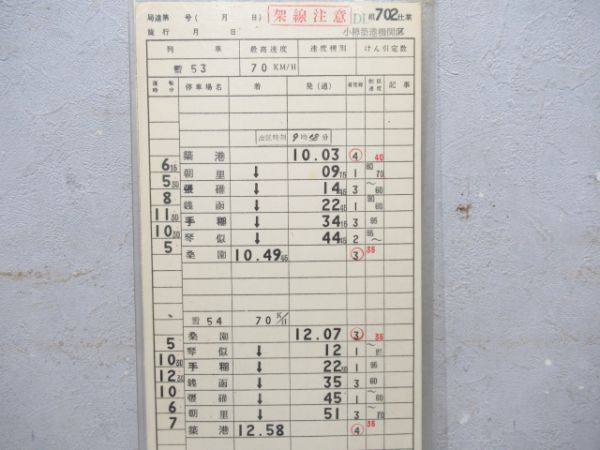 局達第 号( 月 日) 架線注意 DL組702仕業
施行 月 日 小樽築港機関区
列車 最高速度 速度種別 けん引定数
雪53 70 KM/H
運転時分 停車場名 着 発(通) 着発線 制限速度 記事
出区時刻 9時48分
築港 10.03 4 40
6 15 朝里 ↓ 09 15 1 80 70
5 30 張碓 ↓ 14 45 3 〜60
8 銭函 ↓ 22 45 1 90 60
11 30 手稲 ↓ 34 15 3 95
10 30 琴似 ↓ 44 45 2 95〜
5 桑園 10.49 45 3 35
雪54 70 K/H
桑園 12.07 3 35
5 琴似 ↓ 12 1
10 30 手稲 ↓ 22 30 1 95
12 30 銭函 ↓ 35 3 60
10 張碓 ↓ 45 1 〜60
6 朝里 ↓ 51 3 70
7 築港 12.58 4 35